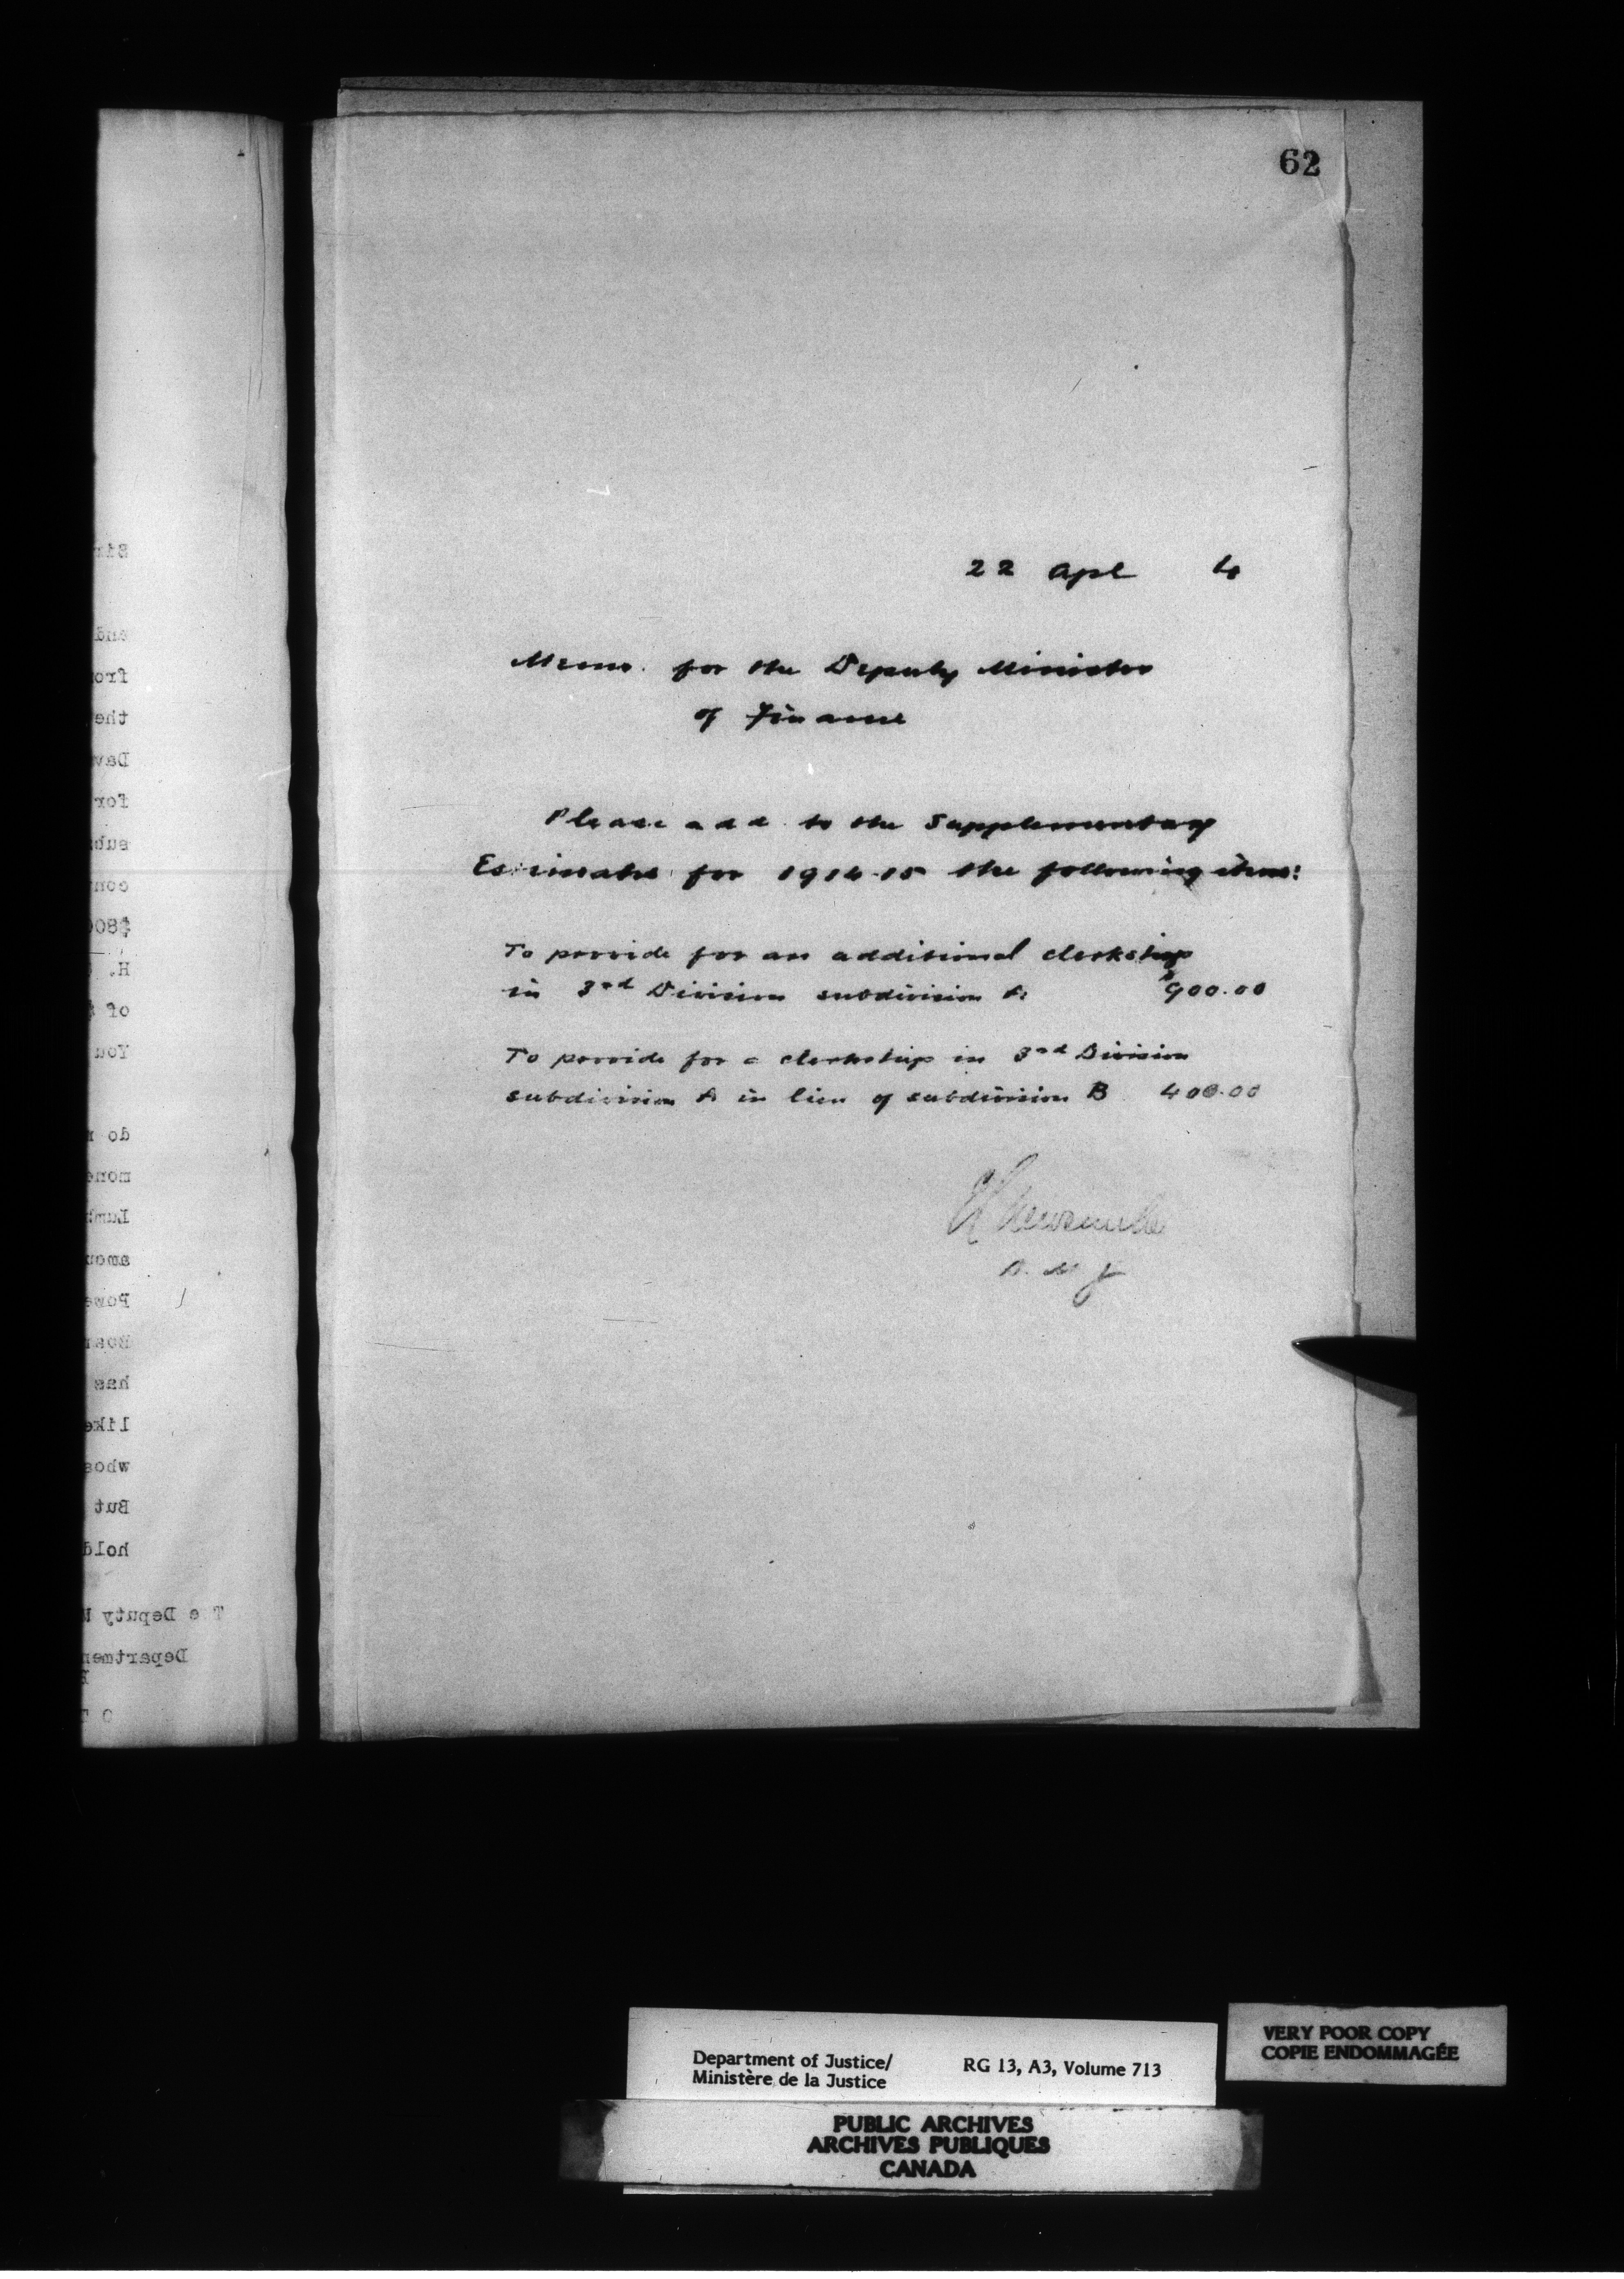 62
22 Apl 4
Memo. for the Deputy Minister
of Finance
Please add to the Supplementary
Estimates for 1914-15 the following items:
To provide for an additional clerkship
in 3rd Division subdivision A $900.00
To provide for a clerkship in 3rd Division
subdivision A in lieu of subdivision B 400.00
Newcombe
D. M. J
Department of Justice/
Ministère de la Justice
RG 13, A3, Volume 713
VERY POOR COPY
COPIE ENDOMMAGÉE
PUBLIC ARCHIVES
ARCHIVES PUBLIQUES
CANADA